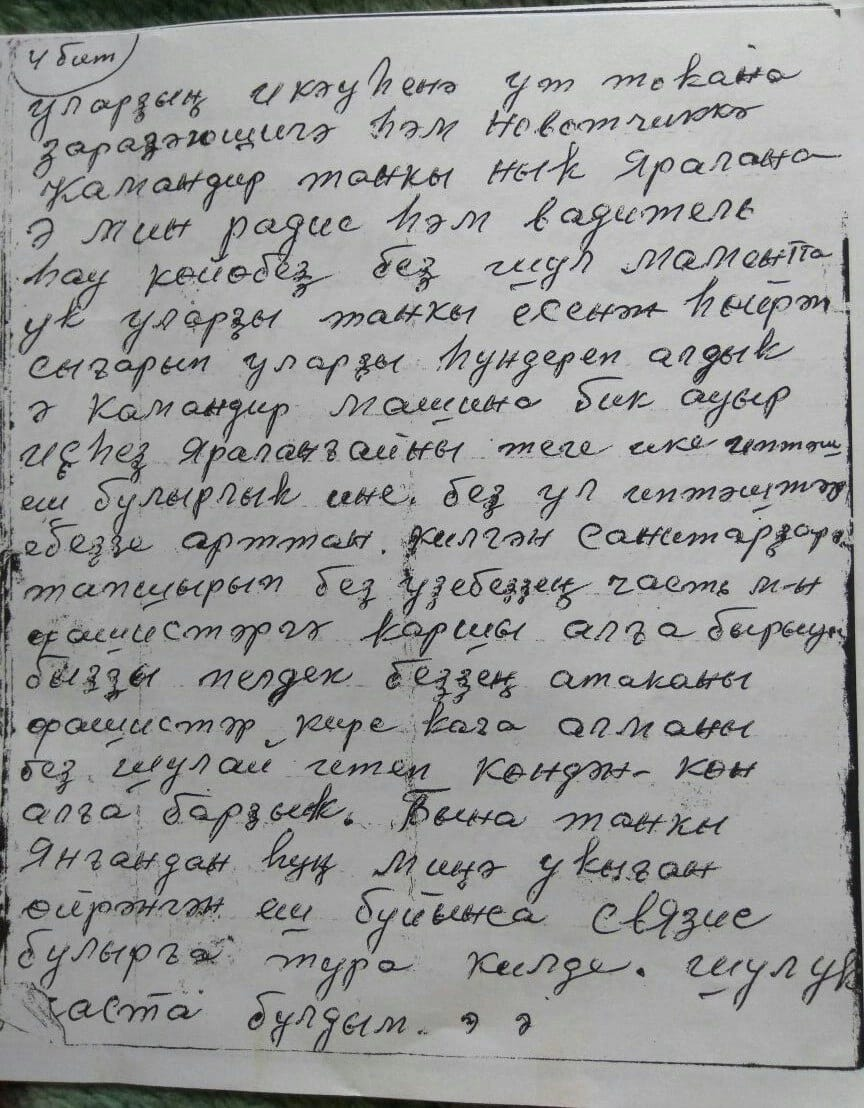 4 бит
уларҙың икәуһенә ут токана
ҙараҙәющигә һәм новотчикка
Камандир танкы нык Яралана
ә мин радис һәм вадитель
һау көйөбеҙ беҙ шул маментта
ук уларҙы танкы ёсенән һөйрәп
сығарып уларҙы һүндереп алдык
ә Камандир машина бик ауыр
иҫһеҙ Яраланғайны теге ике иптәш
еш булырлык ине. беҙ ул иптәштәр
ебеҙҙе арттан. килгән санитарҙарға
тапшырып беҙ үҙебеҙҙең часть м-н
фашистәргә каршы алға бырыуы
быҙҙы белдек беҙҙең атаканы
фашистәр кире каға алманы
беҙ шулай итеп көндән-көн
алға барҙык. Бына танкы
Янғандан һуң миңә укыған
өйрәнгән еш буйынса связис
булырға тура килде. шул ук
часта булдым. ә ә